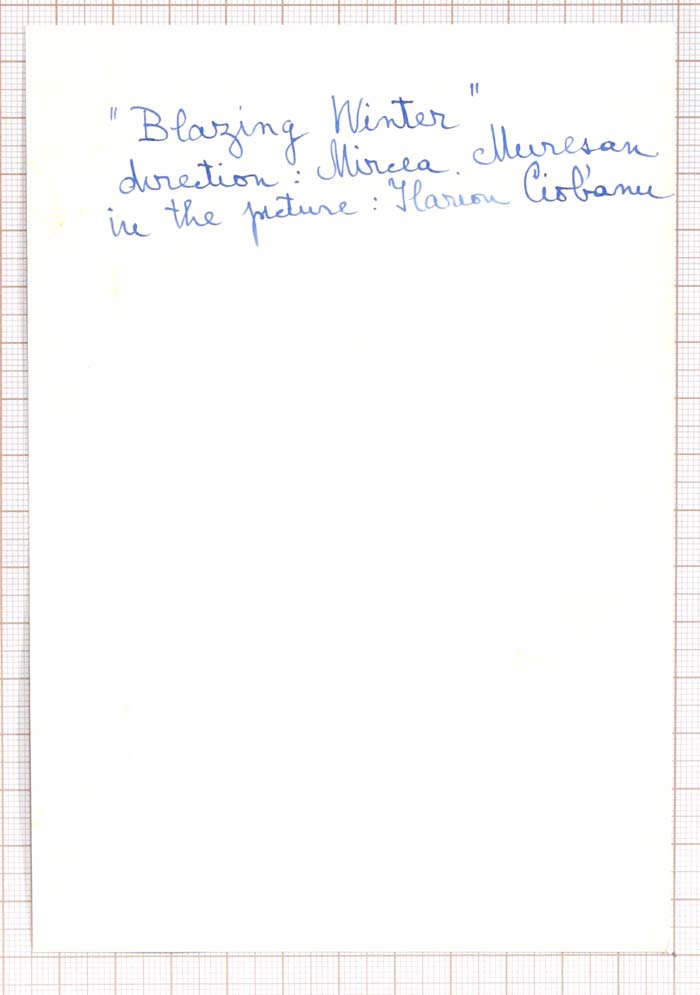 "Blazing Winter"
direction: Mircea Muresan
in the picture: Ilarion Ciobanu